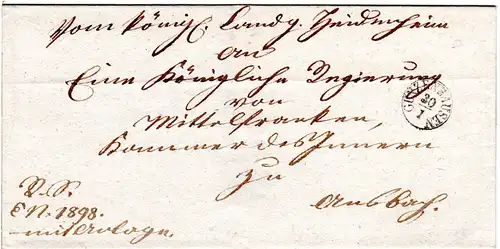 Vom königl. Landg. Heidenheim
an
Eine Königliche Regierung
von
Mittelfranken,
Kammer des Innern
zu
Ansbach.
GUNZENHAUSEN
20
1
R. S.
E. N. 1898.
mit Anlage.